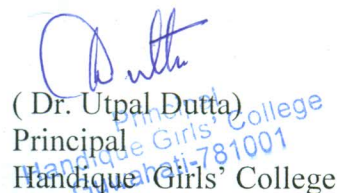 Dutta
( Dr. Utpal Dutta)
Principal
Handique Girls' College
Principal
Handique Girls' College
Guwahati-781001